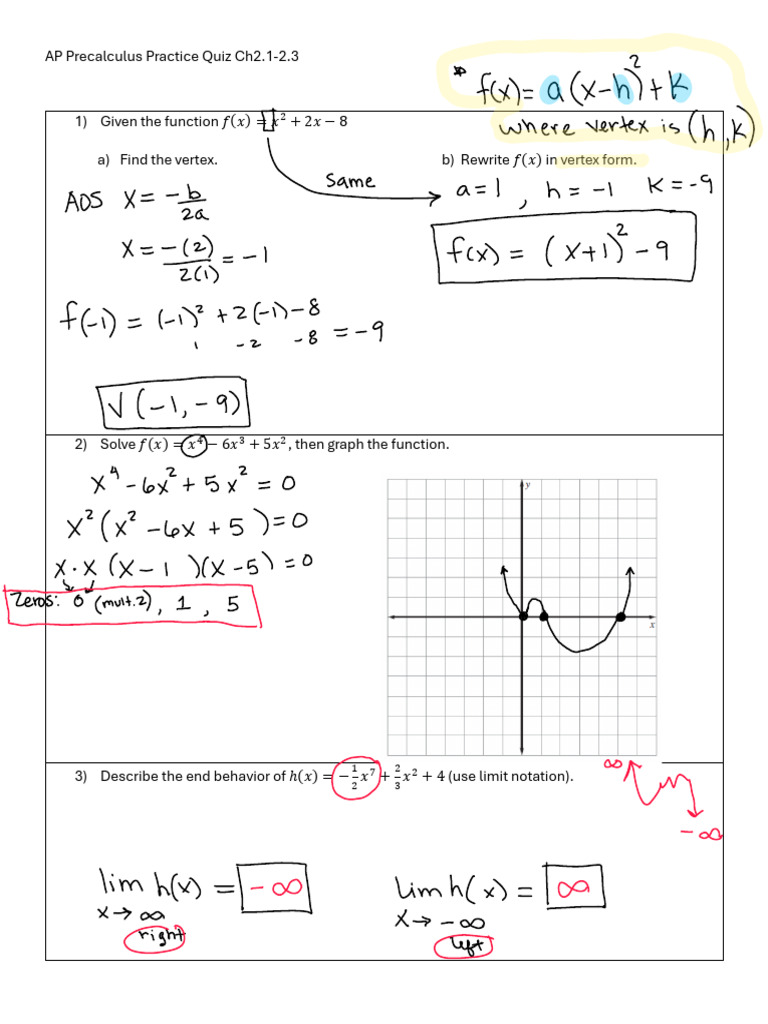 AP Precalculus Practice Quiz Ch2.1-2.3
* f(x) = a(x-h)² + k
where vertex is (h, k)
1) Given the function f(x) = x² + 2x − 8
a) Find the vertex.
b) Rewrite f(x) in vertex form.
Same
AOS x = -b/2a
x = -(2)/2(1) = -1
f(-1) = (-1)² + 2(-1) - 8
1 -2 -8 = -9
V (-1, -9)
a = 1, h = -1 k = -9
f(x) = (x+1)² - 9
2) Solve f(x) = x⁴ − 6x³ + 5x², then graph the function.
x⁴ - 6x² + 5x² = 0
x² (x² - 6x + 5) = 0
x · x (x - 1 )(x - 5) = 0
Zeros: 0 (mult. 2), 1, 5
y
x
3) Describe the end behavior of h(x) = −1/2 x⁷ + 2/3 x² + 4 (use limit notation).
∞
-∞
lim h(x) = -∞
x → ∞
right
lim h(x) = ∞
x → -∞
left